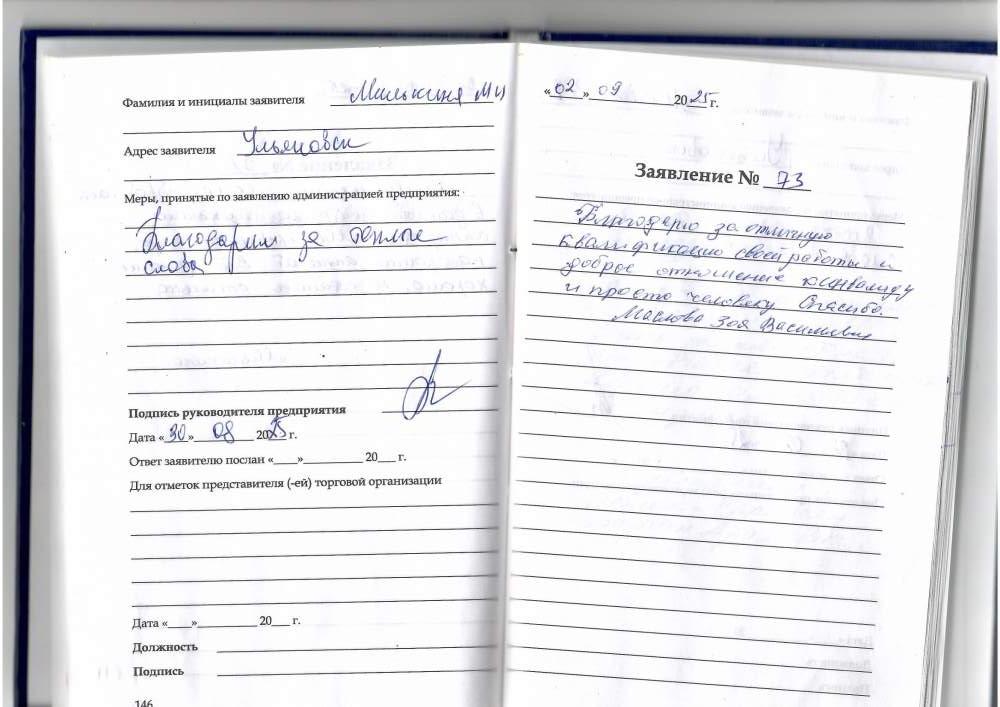 Фамилия и инициалы заявителя Милькина М И
Адрес заявителя Ульяновск
Меры, принятые по заявлению администрацией предприятия:
Благодарим за теплые
слова
Подпись руководителя предприятия
Дата «30» 08 2025 г.
Ответ заявителю послан «___»__________ 20___ г.
Для отметок представителя (-ей) торговой организации
Дата «____»__________ 20___ г.
Должность
Подпись
146
«02» 09 2025 г.
Заявление № 73
Благодарю за отличную
квалификацию своей работы и
доброе отношение к инвалиду
и просто человеку Спасибо.
Маслова Зоя Васильевна